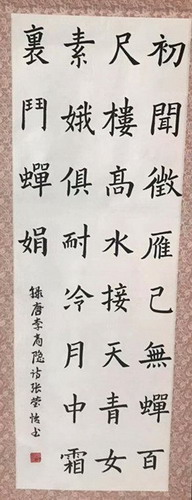 初聞徵雁己無蟬百
尺樓高水接天青女
素娥俱耐冷月中霜
裏鬥蟬娟
録唐李商隐诗张莹书